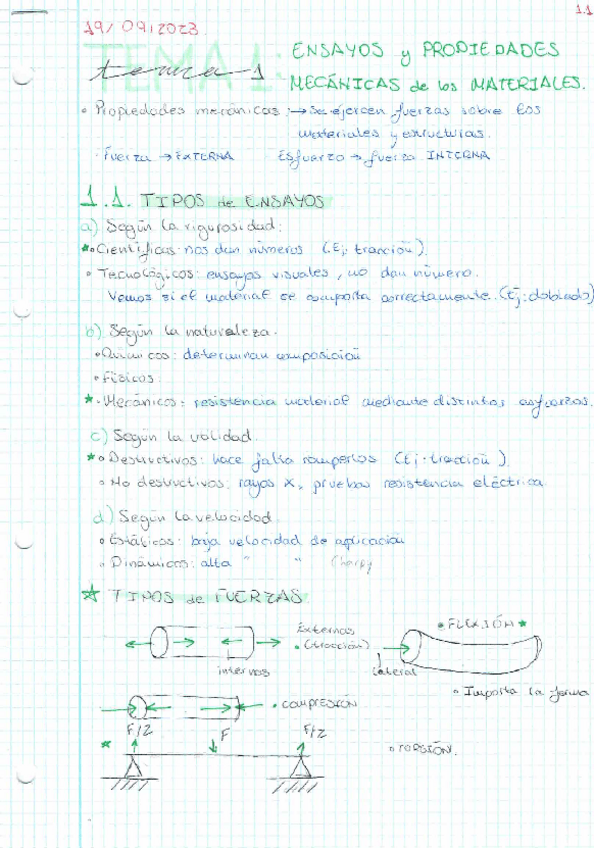 1.1
19/09/2023
TEMA 1:
tema 1
ENSAYOS y PROPIEDADES
MECÁNICAS de los MATERIALES.
• Propiedades mecánicas: → Se ejercen fuerzas sobre los
materiales y estructuras.
· Fuerza → EXTERNA Esfuerzo → fuerza INTERNA
1.1. TIPOS de ENSAYOS
a) Según la rigurosidad:
★• Científicos: nos dan números (Ej: tracción).
• Tecnológicos: ensayos visuales, no dan número.
Vemos si el material se comporta correctamente. (Ej: doblado)
b) Según la naturaleza.
• Químicos: determinan composición
• Físicos:
★• Mecánicos: resistencia material mediante distintos esfuerzos.
c) Según la validad.
★• Destructivos: hace falta romperlos (Ej: tracción).
• No destructivos: rayos X, pruebas resistencia eléctrica.
d) Según la velocidad.
• Estáticos: baja velocidad de aplicación
• Dinámicos: alta " " Charpy
★ TIPOS de FUERZAS
Externas
• (tracción)
internas
★ FLEXIÓN ★
Lateral
• Importa la forma
• COMPRESIÓN
F/2
F
F/2
★
• TORSIÓN.